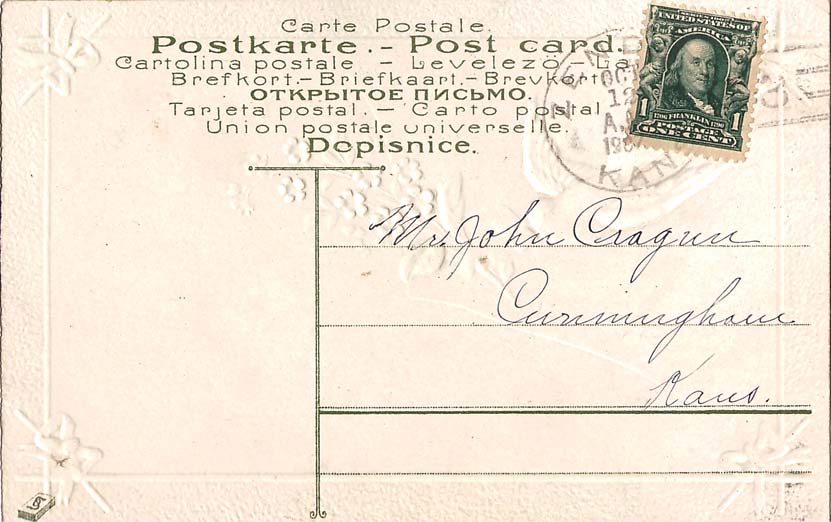 Carte Postale.
Postkarte.- Post card.
Cartolina postale - Levelezö - La
Brefkort.-Briefkaart.-Brevkort
ОТКРЫТОЕ ПИСЬМО.
Tarjeta postal. - Carto postal
Union postale universelle.
Dopisnice.
ZENDA
OCT
12
A.
190
KANS
UNITED STATES OF
AMERICA
1706 FRANKLIN 1790
1 POSTAGE 1
ONE CENT
Mr. John Cragun
Cunningham
Kans.